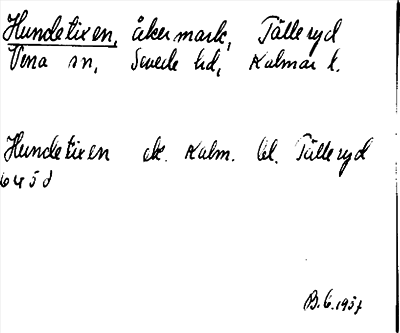 Hundetixen, åkermark, Tälleryd
Vena sn, Sevede hd, Kalmar l.
Hundetixen ek. Kalm. bl. Tälleryd
6450
B. G. 1957